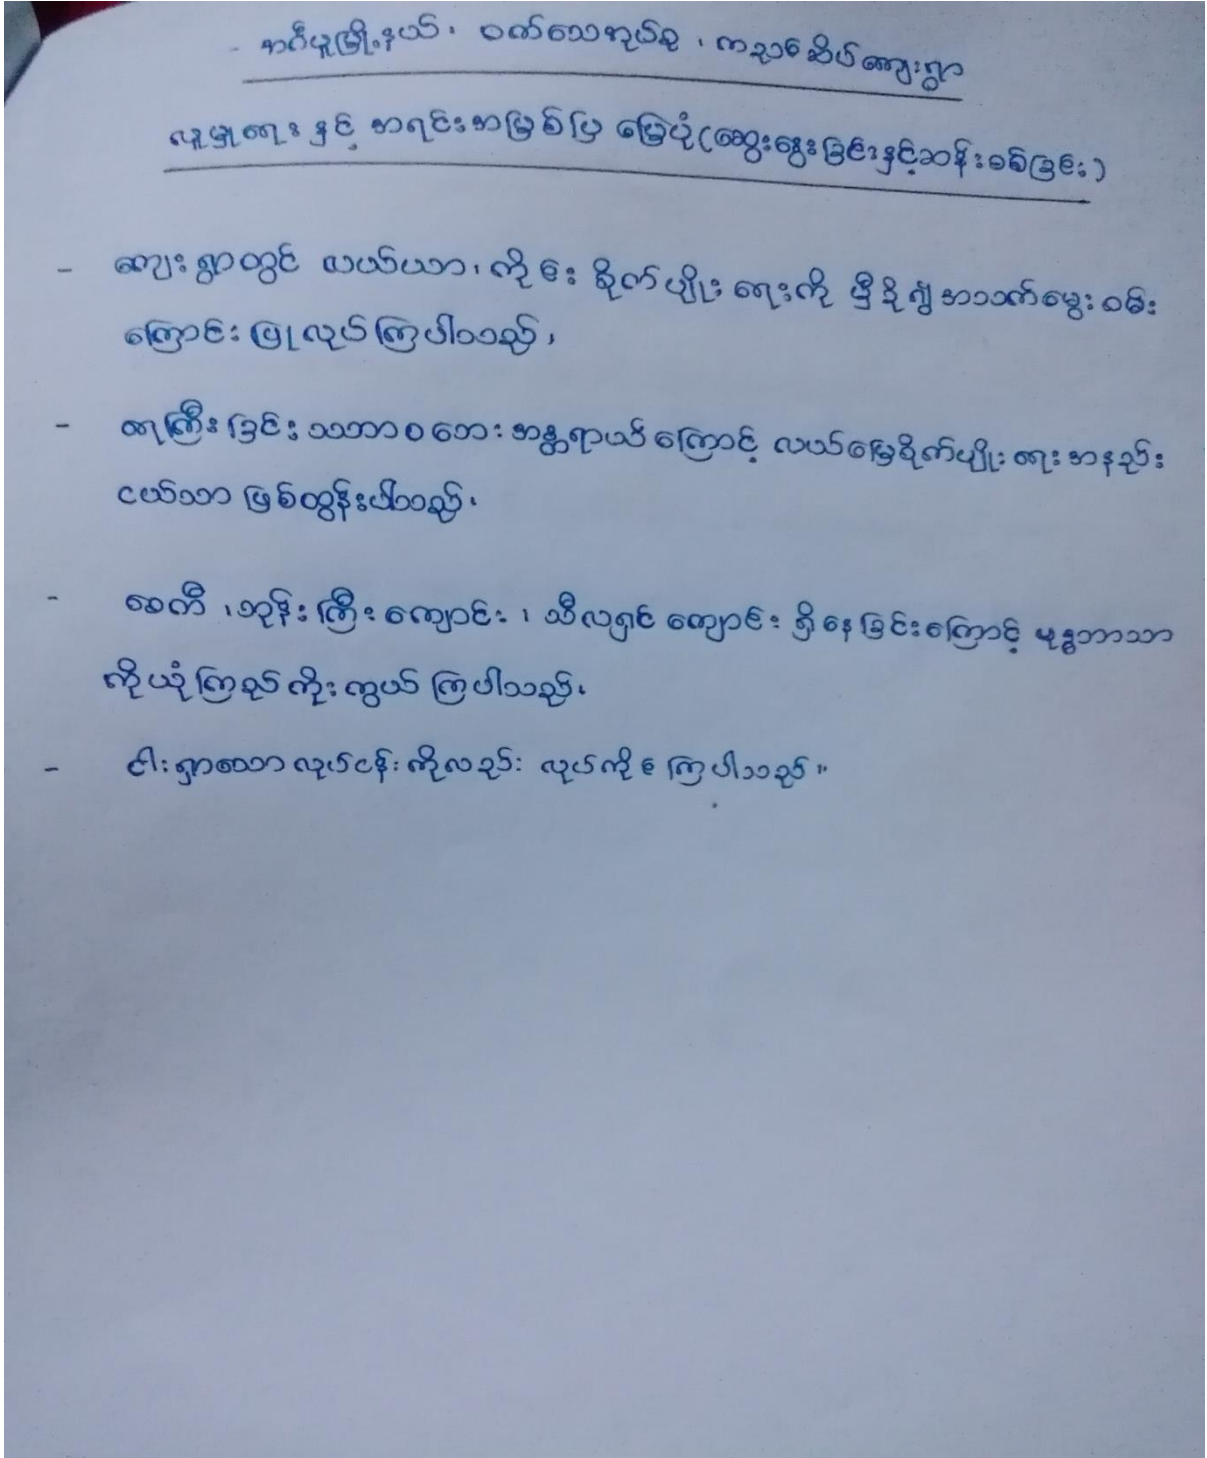 - အင်္ဂပူမြို့နယ်၊ ဝက်သေအုပ်စု၊ ကညင်ဆိပ်ကျေးရွာ
လူမှုရေး နှင့် အရင်းအမြစ်ပြ မြေပုံ(ဆွေးနွေးခြင်းနှင့်ဆန်းစစ်ခြင်း)
- ကျေးရွာတွင် လယ်ယာ၊ ကိုင်း စိုက်ပျိုးရေးကို မှီခို၍ အသက်မွေးဝမ်း
ကြောင်း ပြုလုပ်ကြပါသည်၊
- ရေကြီးခြင်း သဘာဝဘေးအန္တရာယ်ကြောင့် လယ်မြေစိုက်ပျိုးရေး အနည်း
ငယ်သာ ဖြစ်ထွန်းပါသည်၊
- စေတီ ၊ ဘုန်းကြီးကျောင်း ၊ သီလရှင် ကျောင်း ရှိနေခြင်းကြောင့် ဗုဒ္ဓဘာသာ
ကိုယုံကြည်ကိုးကွယ်ကြပါသည်၊
- ငါးရှာသော လုပ်ငန်းကိုလည်း လုပ်ကိုင်ကြပါသည်။